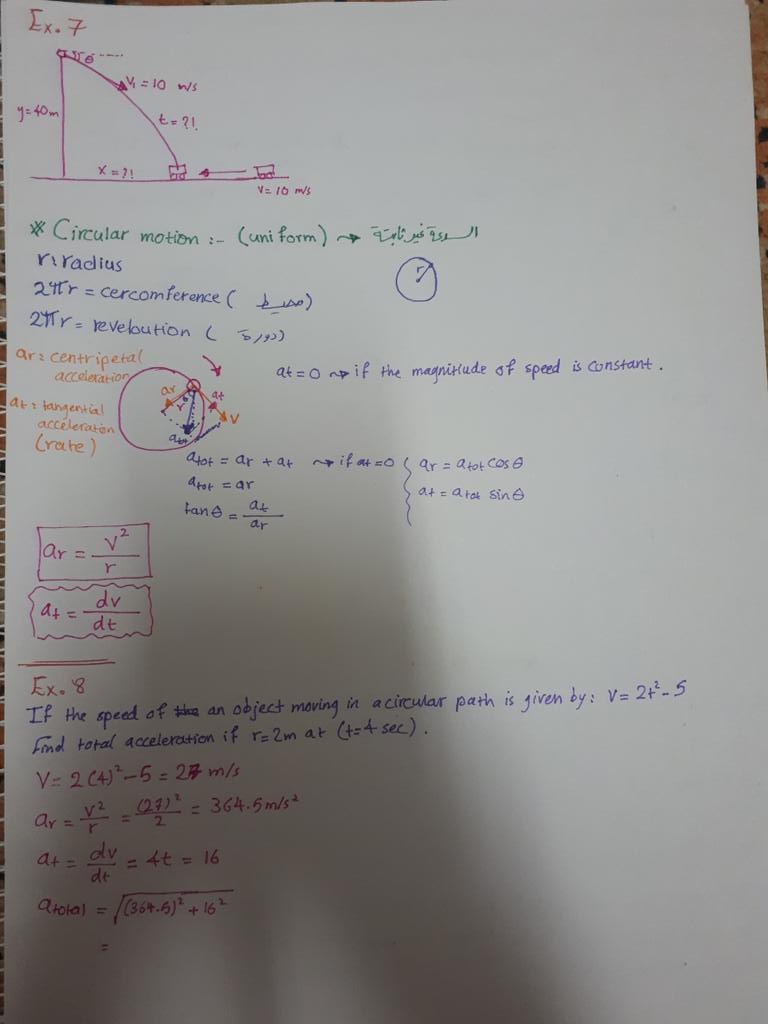 Ex. 7
θ
V₁ = 10 m/s
y = 40m
t = ?!
x = ?!
V = 10 m/s
* Circular motion :- (uniform) → السرعة غير ثابتة
r: radius
r
2πr = cercomference ( محيط )
2πr = reveloution ( دورة )
ar = centripetal
acceleration
at = 0 → if the magnitiude of speed is constant.
at = tangential
acceleration
(rate)
ar
r
θ
at
V
atot
atot = ar + at → if at = 0
atot = ar
tan θ = at/ar
ar = atot cos θ
at = atot sin θ
ar = V²/r
at = dv/dt
Ex. 8
If the speed of the an object moving in a circular path is given by: V = 2t² - 5
Find total acceleration if r = 2m at (t = 4 sec).
V = 2(4)² - 5 = 27 m/s
ar = V²/r = (27)²/2 = 364.5 m/s²
at = dv/dt = 4t = 16
atotal = √(364.5)² + 16²
=